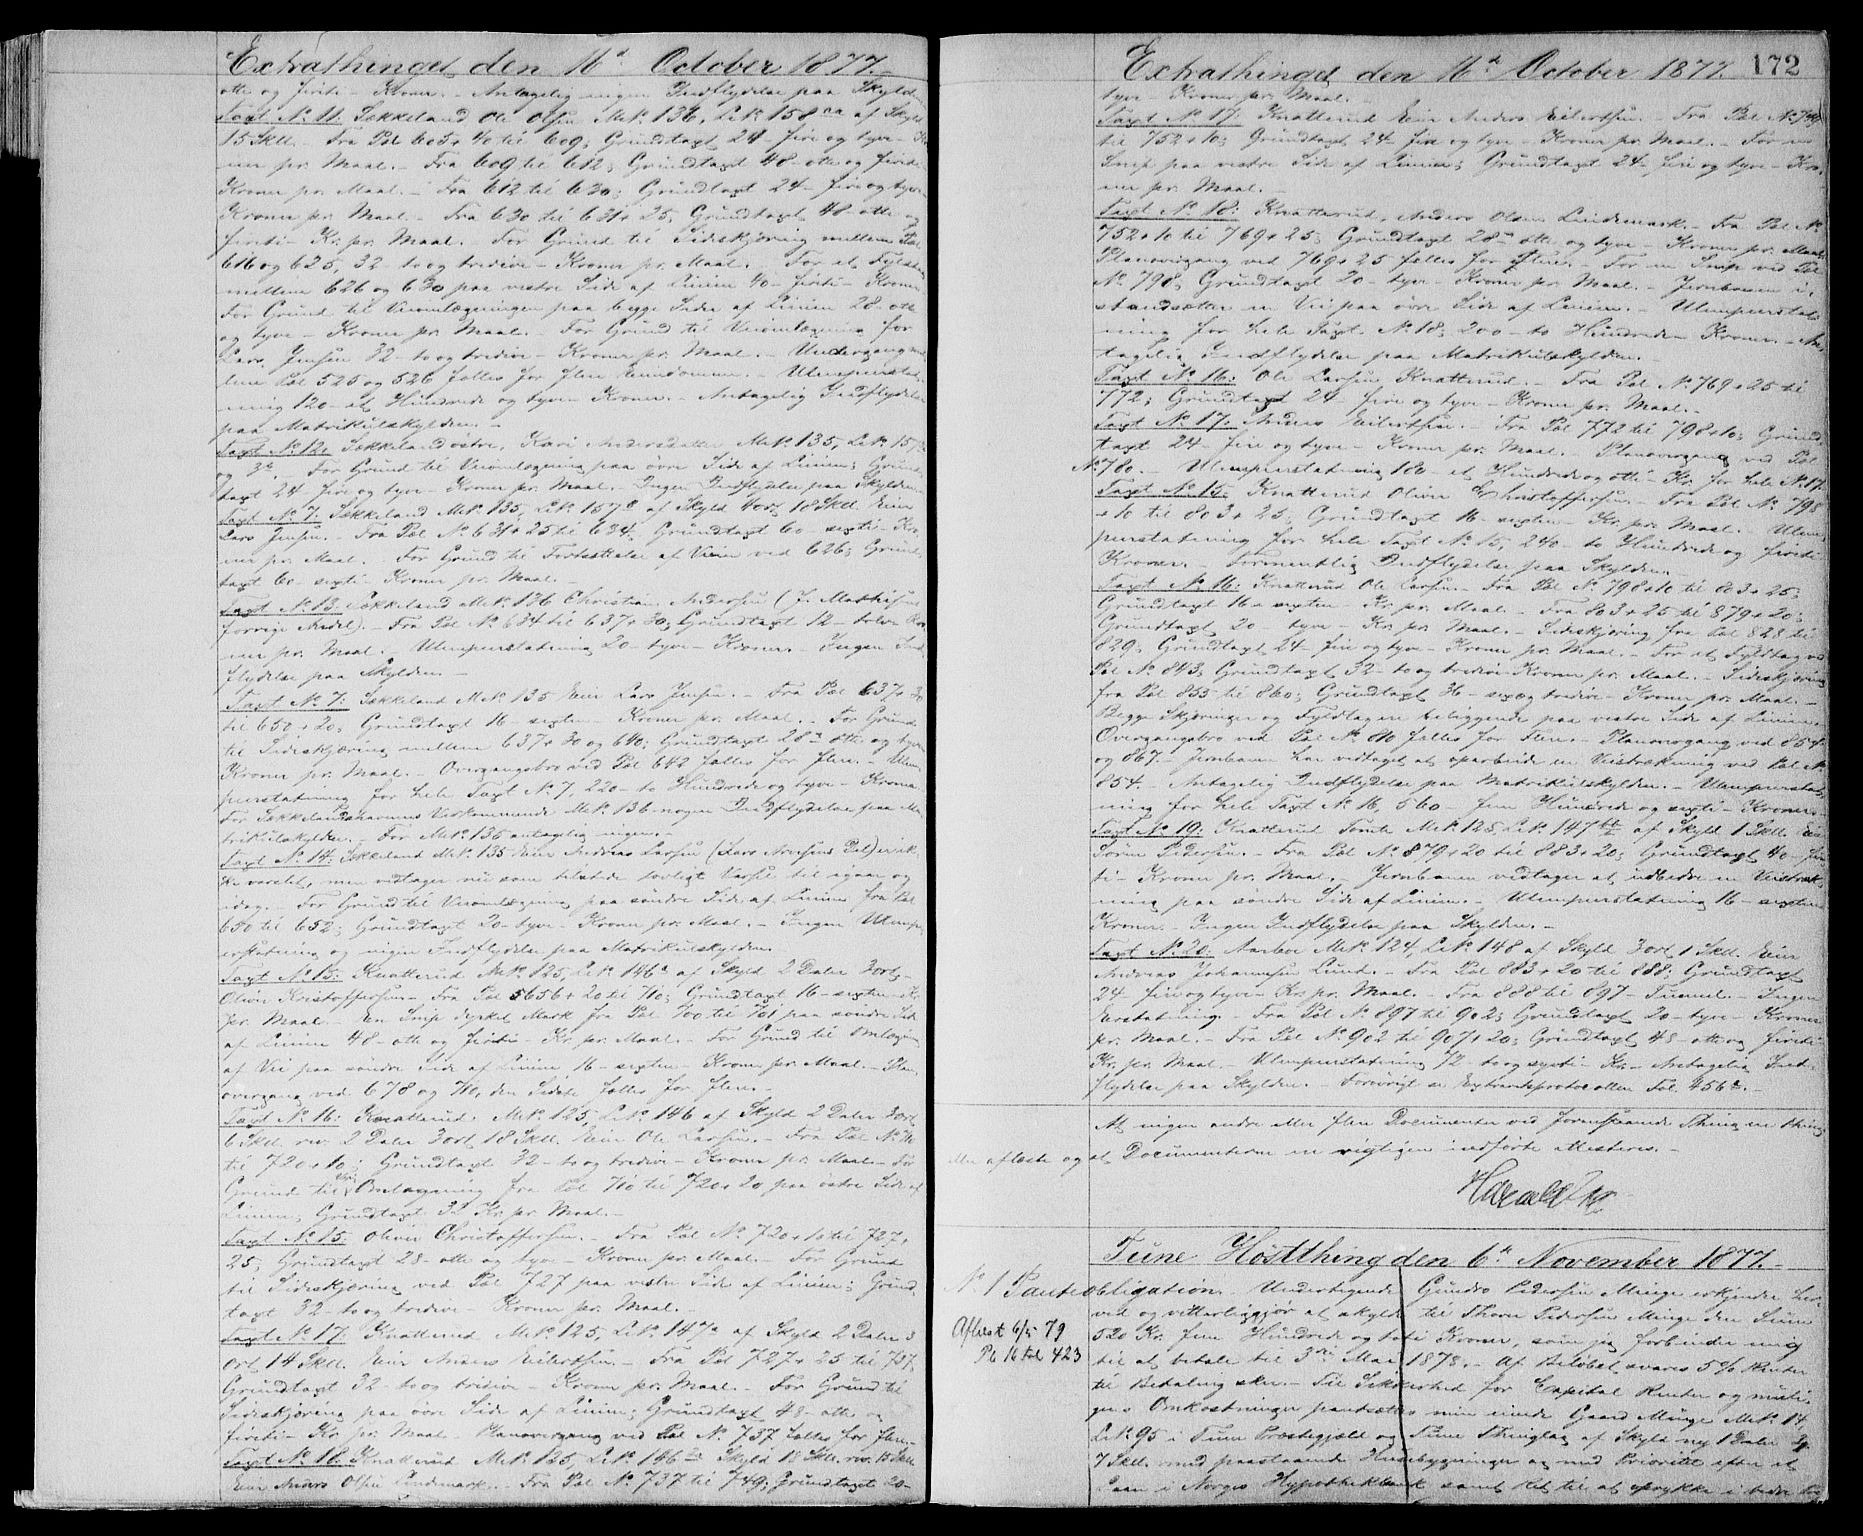 Extrathinget den 16d October 1877.
otte og firti - Kroner. - Antagelig ingen Indflydelse paa Skylden
Taxt No 11. Sekkeland Ole Olsen M.No. 136, L.No. 158 af Skyld
15 Skll. - Fra Pæl 605+40 til 609; Grundtaxt 24 fire og tyve - Kro-
ner pr. Maal. - Fra 609 til 612; Grundtaxt 48 - otte og firti
Kroner pr. Maal. - Fra 612 til 630; Grundtaxt 24 - fire og tyve -
Kroner pr. Maal. - Fra 630 til 631+25; Grundtaxt 48 - otte og
firti - Kr. pr. Maal. For Grund til Sideskjæring mellem Pæl
616 og 625, 32 - to og tredive - Kroner pr. Maal. - For et Fyldtag
mellem 626 og 630 paa vestre Side af Linien 40 - firti - Kroner
For Grund til Veiomlægningen paa begge Sider af Linien 28 - otte
og tyve - Kroner pr. Maal. - For Grund til Veiomlægning for
Lars Jensen 32 - to og tredive - Kroner pr. Maal. - Undergang mel-
lem Pæl 525 og 526 fælles for flere Eiendomme. - Ulempeerstat-
ning 120 - et Hundrede og tyve - Kroner. - Antagelig Indflydelse
paa Matrikulskylden. -
Taxt No 12. Sekkeland østre, Kari Andersdatter M.No. 135, L.No. 157
og 3. For Grund til Veiomlægning paa øvre Side af Linien; Grund-
taxt 24 - fire og tyve - Kroner pr. Maal. - Ingen Indflydelse paa Skylden.
Taxt No 7. Sekkeland M.No. 135, L.No. 157 af Skyld 4 ort 18 Skll. Eier
Lars Jensen. - Fra Pæl No 631+25 til 634. Grundtaxt 60 - sexti - Kro-
ner pr. Maal. - For Grund til Fortsettelse af Veien ved 626; Grund-
taxt 60 - sexti - Kroner pr. Maal. -
Taxt No 13. Sekkeland M.No. 136 Christian Andersen (J. Mathisens
forrige Andel). - Fra Pæl No 634 til 637+30; Grundtaxt 12 - tolv Kro-
ner pr. Maal. - Ulempeerstatning 20 - tyve - Kroner. - Ingen Ind-
flydelse paa Skylden. -
Taxt No 7. Sekkeland M.No. 135 Eier Lars Jensen. - Fra Pæl 637+30
til 650+20; Grundtaxt 16 - sexten - Kroner pr. Maal. - For Grund
til Sideskjæring mellem 637+30 og 640; Grundtaxt 28 - otte og tyve
Kroner pr. Maal. - Overgangsbro ved Pæl 642 fælles for flere. - Ulem-
peerstatning for hele Taxt No 7, 220 - to Hundrede og tyve - Kroner
for Sekkeland M.No. 136 nogen Indflydelse paa Ma-
trikulskylden. - For M.No. 135 antagelig ingen. -
Taxt No 14. Sekkeland M.No. 135 Eier Andreas Larsen (Lars Arnesens Pæl) er ik-
ke varslet, men vedtager nu som tilstede lovligt Varsel til igaar og
idag. - For Grund til Veiomlægning paa søndre Side af Linien fra Pæl
650 til 652; Grundtaxt 20 - tyve - Kroner pr. Maal. - Ingen Ulempe-
erstatning og ingen Indflydelse paa Matrikulskylden.
Taxt No 15. Knatterud M.No. 125, L.No. 146a af Skyld 2 Daler 3 ort
Oliver Kristoffersen - Fra Pæl 5656+20 til 710; Grundtaxt 16 - sexten - Kr.
pr. Maal. - En Snip dyrket Mark fra Pæl 700 til 701 paa søndre Side
af Linien 48 - otte og firti - Kr. pr. Maal. - For Grund til Omlægning
af Vei paa søndre Side af Linien 16 - sexten - Kroner pr. Maal. - Plan-
overgang ved 678 og 710, den Sidste fælles for flere. -
Taxt No 16. Knatterud. M.No. 125, L.No. 146 af Skyld 2 Daler 3 ort
6 Skll. rev. 2 Daler 3 ort 18 Skll. Eier Ole Larsen. - Fra Pæl No 710
til 720+10; Grundtaxt 32 - to og tredive - Kroner pr. Maal. - For
Grund til Vei Omlægning fra Pæl 710 til 720+20 paa østre Side af
Linien; Grundtaxt 32 Kr. pr. Maal. -
Taxt No 15. Oliver Christoffersen. - Fra Pæl No. 720+10 til 727+
25; Grundtaxt 28 - otte og tyve - Kroner pr. Maal. - For Grund
til Sideskjæring ved Pæl 727 paa vestre Side af Linien; Grund-
taxt 32 - to og tredive - Kroner pr. Maal. -
Taxt No 17. Knatterud M.No. 125, L.No. 147a af Skyld 2 Daler 3
ort 14 Skll. Eier Anders Eilertsen. - Fra Pæl 727+25 til 737,
Grundtaxt 32 - to og tredive - Kroner pr. Maal. - For Grund til
Sideskjæring paa øvre Side af Linien; Grundtaxt 48 - otte og
firti - Kr. pr. Maal. - Planovergang ved Pæl No. 737 fælles for flere -
Taxt No 18. Knatterud M.No. 125, L.No. 146 Skyld 18 Skll. rev. 15 Skll.
Eier Anders Olsen Lindemark. - Fra Pæl No. 737 til 749; Grundtaxt 20 -
Extrathinget den 16d October 1877. 172
tyve - Kroner pr. Maal. -
Taxt No 17. Knatterud Eier Anders Eilertsen. - Fra Pæl No 749
til 752+10; Grundtaxt 24 - fire og tyve - Kroner pr. Maal. - For en
Snip paa vestre Side af Linien; Grundtaxt 24 - fire og tyve - Kro-
ner pr. Maal. -
Taxt No 18. Knatterud, Anders Olsen Lindemark. - Fra Pæl No
752+10 til 769+25; Grundtaxt 28 - otte og tyve - Kroner pr. Maal
Planovergang ved 769+25 fælles for flere. - For en Snip ved Pæl
No 798; Grundtaxt 20 - tyve - Kroner pr. Maal. - Jernbanen i-
standsætter en Vei paa øvre Side af Linien. - Ulempeerstat-
ning for hele Taxt No. 18, 200 - to Hundrede Kroner. - An-
tagelig Indflydelse paa Matrikulskylden. -
Taxt No 16. Ole Larsen, Knatterud. - Fra Pæl No 769+25 til
772; Grundtaxt 24 - fire og tyve - Kroner pr. Maal. -
Taxt No 17. Anders Eilertsen. - Fra Pæl 772 til 798+10; Grund-
taxt 24 - fire og tyve - Kroner pr. Maal. - Planovergang ved Pæl
No 780. - Ulempeerstatning 180 - et Hundrede og otti - Kr. for hele No 17.
Taxt No 15. Knatterud Oliver Christoffersen. - Fra Pæl No. 798
+10 til 803+25; Grundtaxt 16 - sexten - Kr. pr. Maal. - Ulem-
peerstatning for hele Taxt No 15, 240 - to Hundrede og firti
Kroner. - Formentlig Indflydelse paa Skylden. -
Taxt No 16. Knatterud Ole Larsen. - Fra Pæl No. 798+10 til 803+25;
Grundtaxt 16 - sexten - Kr. pr. Maal. - Fra 803+25 til 879+20;
Grundtaxt 20 - tyve - Kr. pr. Maal. - Sideskjæring fra Pæl 828 til
829; Grundtaxt 24 - fire og tyve - Kroner pr. Maal. - For et Fyldtag ved
Pæl No. 843; Grundtaxt 32 - to og tredive Kroner pr. Maal. - Sideskjæring
fra Pæl 855 til 860; Grundtaxt 36 - sex og tredive - Kroner pr. Maal. -
Begge Skjæringer og Fyldtagene beliggende paa vestre Side af Linien
Overgangsbro ved Pæl No. 810 fælles for flere. - Planovergang ved 854
og 867. - Jernbanen har vedtaget at oparbeide en Veistrækning ved Pæl No
854. - Antagelig Indflydelse paa Matrikulskylden. - Ulempeerstat-
ning for hele Taxt No. 16, 560 - fem Hundrede og sexti - Kroner.
Taxt No 19. Knatterud Tomte M.No. 125, L.No. 147 af Skyld 1 Skll. Eier
Søren Pedersen. - Fra Pæl No. 879+20 til 883+20; Grundtaxt 40 - fir-
ti - Kroner pr. Maal. - Jernbanen vedtager at udbedre en Veistræk-
ning paa søndre Side af Linien. - Ulempeerstatning 16 - sexten
Kroner. - Ingen Indflydelse paa Skylden. -
Taxt No 20. Aarboe M.No. 124, L.No. 148 af Skyld 3 ort 1 Skll. Eier
Andreas Johannesen Lund. - Fra Pæl 883+20 til 888; Grundtaxt
24 - fire og tyve - Kr. pr. Maal. - Fra 888 til 897 - Tunnel. - Ingen
Erstatning. - Fra Pæl No. 897 til 902; Grundtaxt 20 - tyve - Kroner
pr. Maal. - Fra Pæl No. 902 til 907+20; Grundtaxt 48 - otte og firti
Kr. pr. Maal - Ulempeerstatning 72 - to og sytti - Kr. - Antagelig Ind-
flydelse paa Skylden. Forøvrigt se Extraretsprotocollen Fol. 456. -
At ingen andre eller flere Documenter ved foranstaaende Thing ere Thing-
læste aflæste og at Documenterne ere rigtigen indførte attesteres. -
Tune Høstthing den 6te November 1877. -
No 1 Panteobligation. Undertegnede Gunder Pedersen Minge erkjender her-
ved og vitterliggjør at skylde til Thorer Pedersen Minge den Sum
520 Kr. fem Hundrede og toti Kroner, som jeg forbinder mig
til at betale til 3die Mai 1878. - Af Beløbet svares 5% Renter
til Betaling sker. - Til Sikkerhed for Capital Renter og muli-
gens Omkostninger pantsættes min eiende Gaard Minge M.No. 14,
L.No. 95 i Tune Præstegjæld og Tune Thinglag af Skyld ny 1 Daler
7 Skll. med paastaaende Huusebygninger og med Prioritet efter et
Laan i Norges Hypothekbank samt Ret til at oprykke i bedre
Aflæst 6/5 79
Pb 16 fol 423